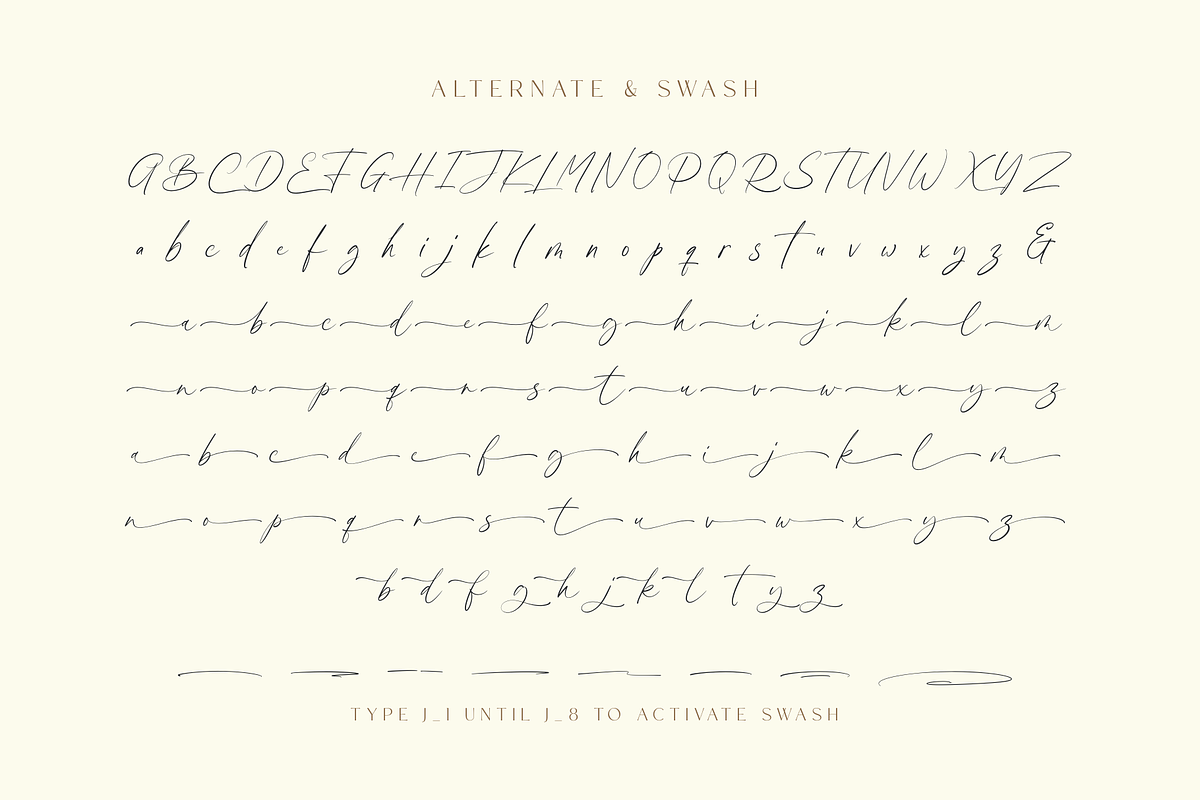 ALTERNATE & SWASH
A B C D E F G H I J K L M N O P Q R S T U V W X Y Z
a b c d e f g h i j k l m n o p q r s t u v w x y z &
a b c d e f g h i j k l m
n o p q r s t u v w x y z
a b c d e f g h i j k l m
n o p q r s t u v w x y z
b d f g h j k l t y z
TYPE J_1 UNTIL J_8 TO ACTIVATE SWASH